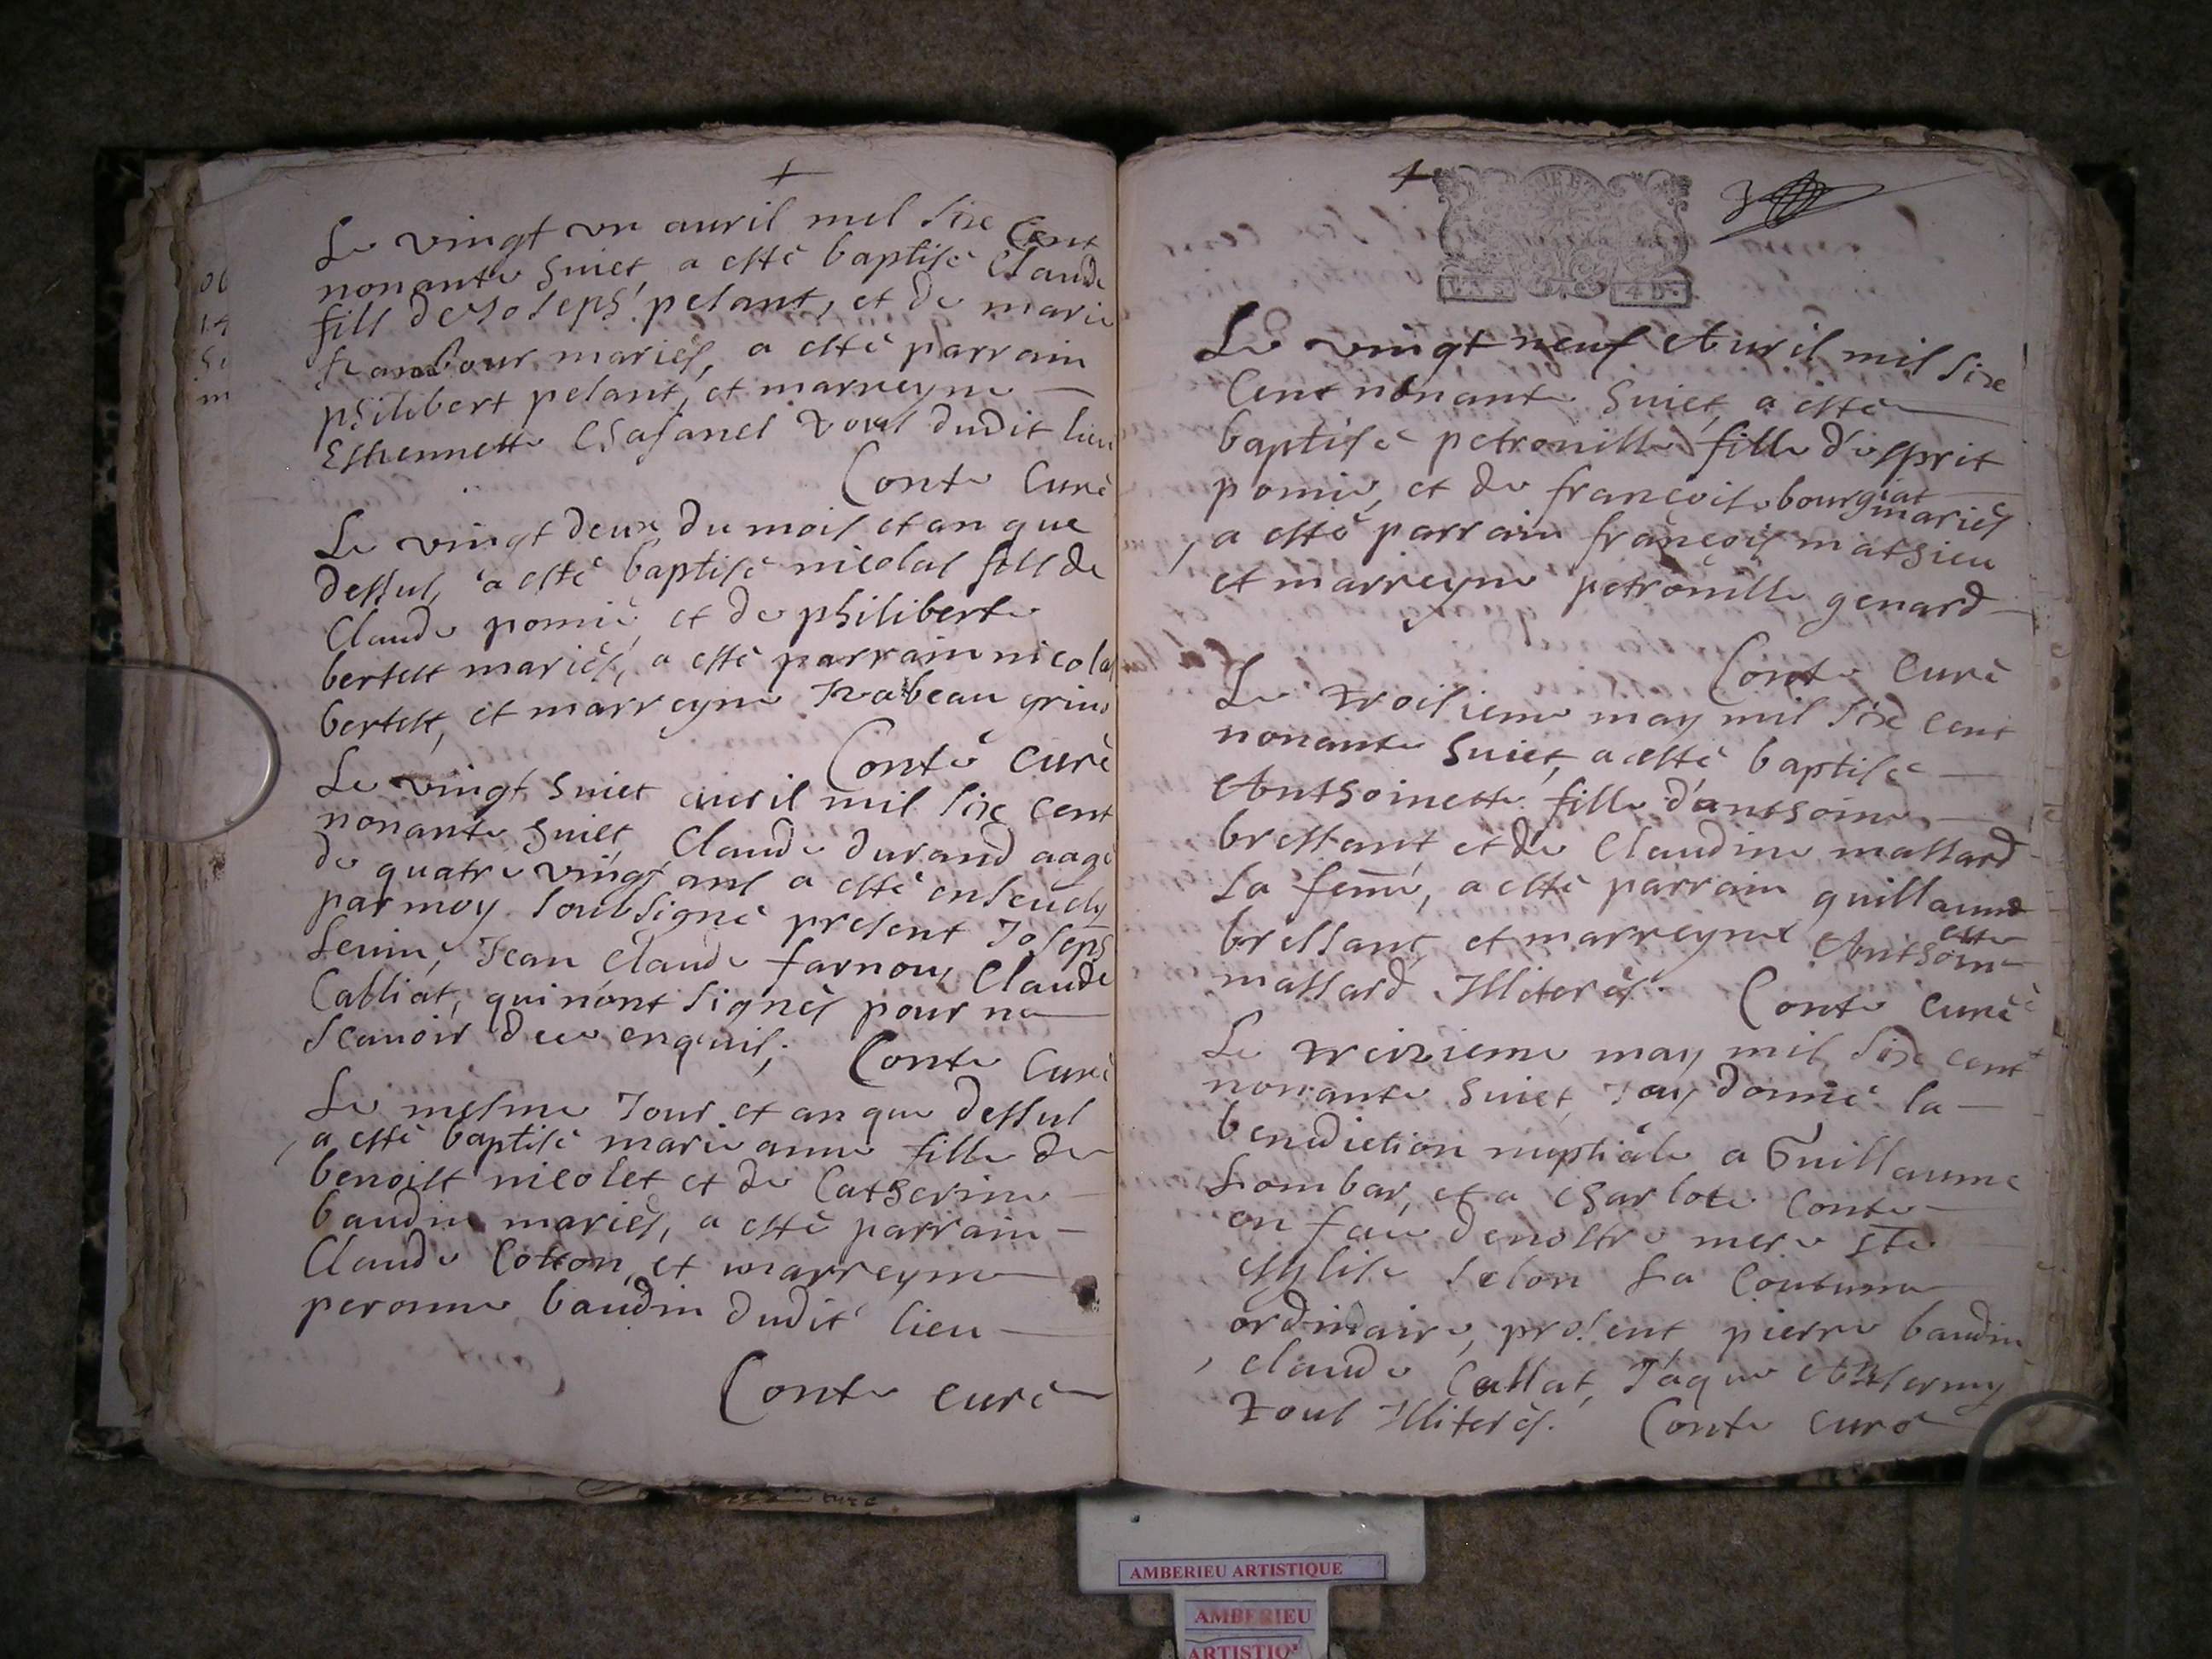 Le vingt un auril mil six Cent
nonante huict, a esté baptisé Claude
fils de Joseph pelant, et de marie
frambour mariés, a esté parrain
philibert pelant, et marreyne
Estiennette Chasanel tous dudit lieu
Conte Curé
Le vingt deux du mois et an que
dessus, a esté baptisé nicolas fils de
Claude pomié, et de philiberte
bertelt mariés, a esté parrain nicolas
bertelt, et marreyne Izabeau
Conte curé
Le vingt huict avril mil six cent
nonante huict Claude durand aagé
de quatre vingt ans a esté ensevely
par moy soubsigné présent Joseph
Jean Claude farnou, Claude
Cabliat, qui n'ont signés pour ne
scavoir de ce enquis; Conte Curé
Le mesme Jour et an que dessus
a esté baptisé marie anne fille de
benoist nicolet et de Catherine
baudin mariés, a esté parrain
Claude Cotton, et marreyne
peronne baudin dudit lieu
Conte curé
4 D.
Le vingt neuf Auril mil six
Cent nonante huict, a esté
baptisé petronille fille d'esprit
pomié, et de françoise bourgiat
mariés
, a esté parrain françois mathieu
et marreyne petronille genard
Conte Curé
Le troisieme may mil six cent
nonante huict, a esté baptisé
Anthoinette fille d'anthoine
bressant et de Claudine massard
sa feme, a esté parrain guillaume
bressant, et marreyne Anthoine
ette
massard Illiterés. Conte Curé
Le treizieme may mil six cent
nonante huict J'ay donné la
benediction nuptiale a Guillaume
Lombar, et a Charlote Conte
en face de nostre mere ste
esglise selon sa Coutume
ordinaire, présent pierre baudin
, Claude Callat, Jaque
tous Illiterés. Conte curé
AMBERIEU ARTISTIQUE
AMBERIEU
ARTISTIQ